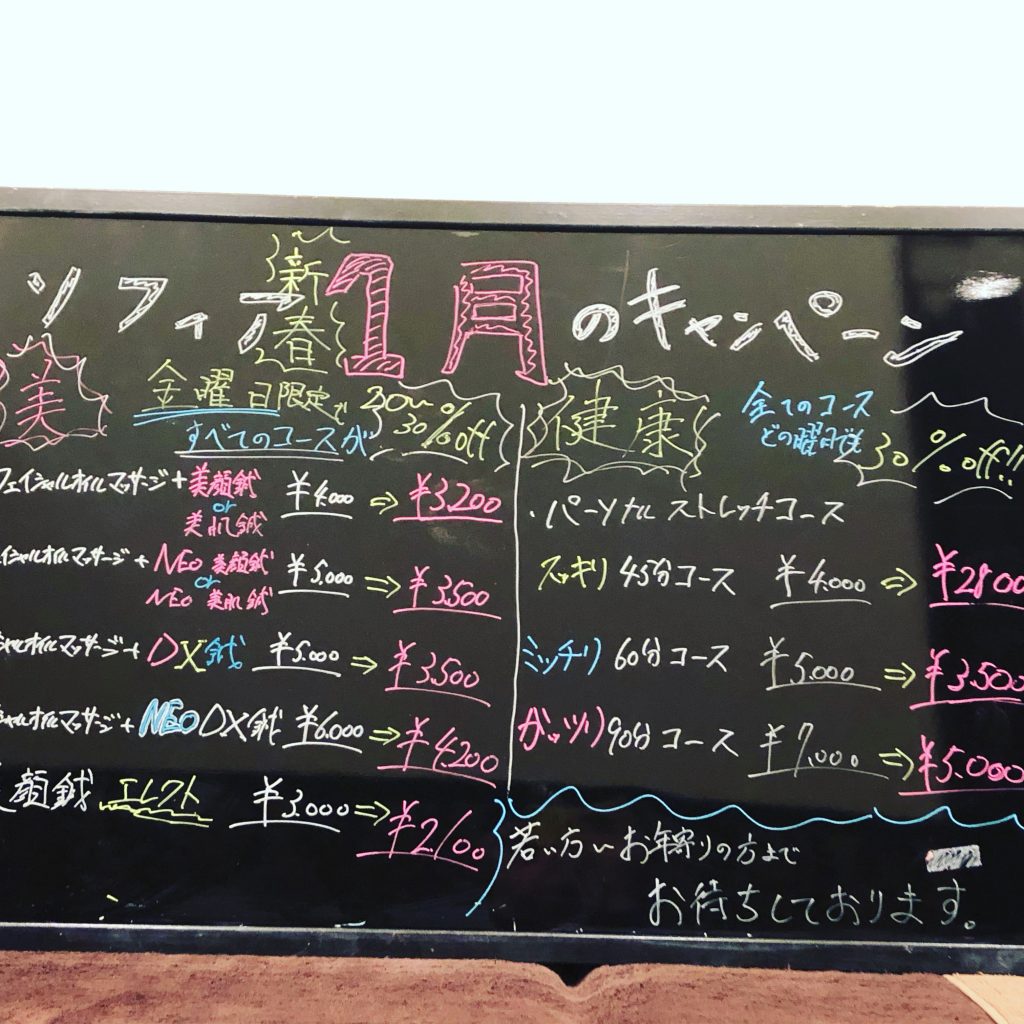 新春
ソフィア1月のキャンペーン
美
金曜日限定で
すべてのコースが
20〜30%off
フェイシャルオイルマッサージ+美顔鍼 ¥4.000⇒¥3.200
or
美肌鍼
イシャルオイルマッサージ+NEO美顔鍼 ¥5.000⇒¥3.500
or
NEO美肌鍼
シャルオイルマッサージ+DX鍼 ¥5.000⇒¥3.500
シャルオイルマッサージ+NEO DX鍼 ¥6.000⇒¥4.200
顔鍼 エレクト ¥3.000⇒¥2.100
健康
全てのコース
どの曜日でも
30%off!!
・パーソナルストレッチコース
スッキリ 45分コース ¥4.000⇒¥2800
ミッチリ 60分コース ¥5.000⇒¥3.500
ガッツリ 90分コース ¥7.000⇒¥5.000
若い方〜お年寄りの方まで
お待ちしております。